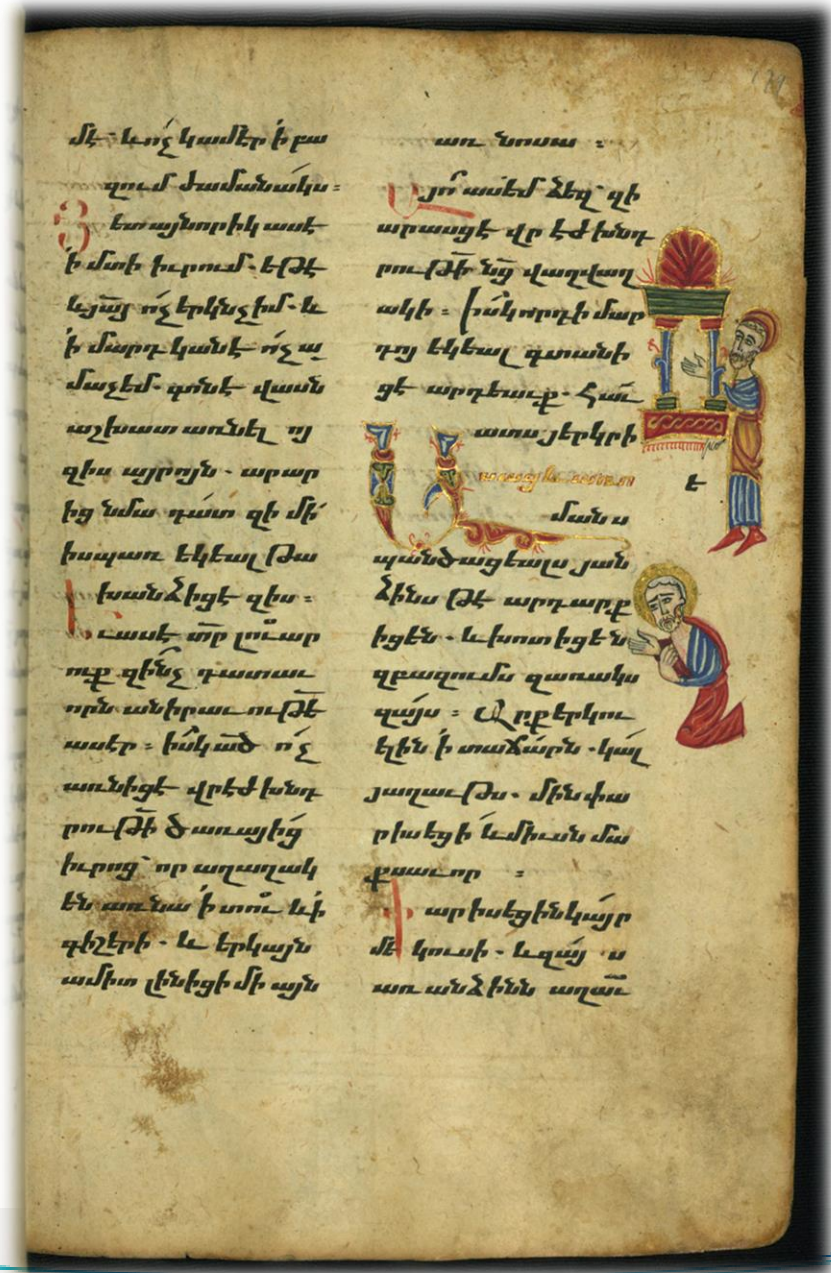 մէ· և ոչ կամէր ի բա
զում ժամանակս։
Յետ այնորիկ ասէ
ի մտի իւրում· եթէ
և յա՟յ ոչ երկնչիմ· և
ի մարդկանէ ոչ ա
մաչեմ· գոնէ վասն
աշխատ առնել ոյ
զիս այրոյն· արար
ից նմա դատ զի մի՛
իսպառ եկեալ թա
խանձիցէ զիս։
Եւ ասէ տ՟ր լուար
ուք զինչ դատաւ
որն անիրաւութե՟
ասէր։ իսկ ա՟ծ ոչ
առնիցէ վրէժխնդ
րութի՟ ծառայից
իւրոց՝ որ աղաղակ
են առ նա ի տուէ և ի
գիշերի· և երկայն
ամիտ լինիցի մի այն
առ նոսա։
Այո՛ ասեմ ձեզ՝ զի
արասցէ վրէժխնդ
րութի՟ նց՟ վաղվաղ
ակի։ իսկ որդի մար
դոյ եկեալ գտանի
ցէ արդեաւք· հաւ
ատս յերկրի
Ասաց և առ ոմ
մանս
պանծացեալս յան
ձինս թէ արդարք
իցեն· և խոտիցեն
զբազումս զառակս
զայս։ Արք երկու
ելին ի տաճարն· կալ
յաղաւթս· մին փա
րիսեցի և միւսն մա
քսաւոր։
Փարիսեցին կայր
մեկուսի· և զայս
առանձինն աղաւ